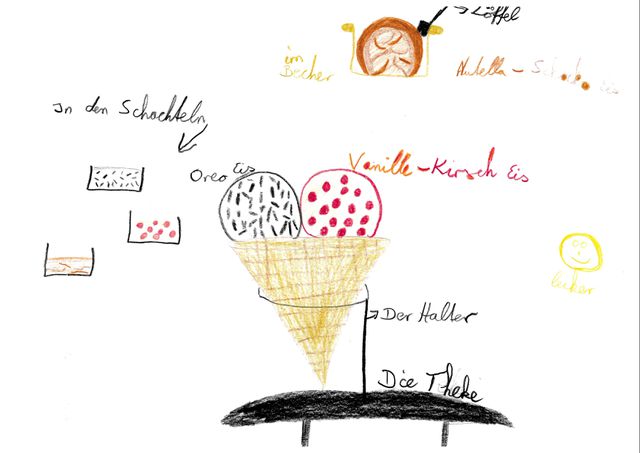 Löffel
im
Becher
Nutella - Schoko Eis
In den Schachteln
Oreo Eis
Vanille - Kirsch Eis
lecker
Der Halter
Die Theke